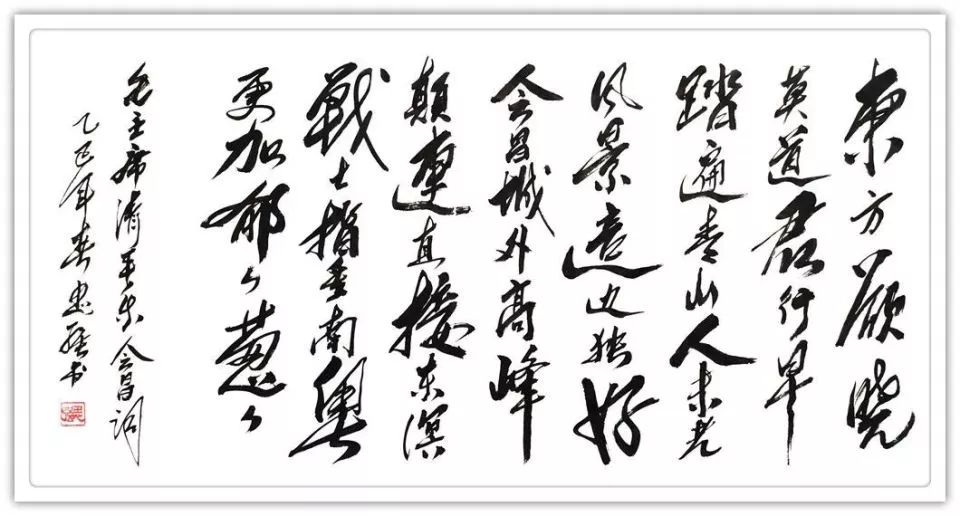 東方欲晓
莫道君行早
踏遍青山人未老
风景這边独好
会昌城外高峰
顛連直接东溟
戰士指看南粤
更加郁々葱々
毛主席清平乐会昌词
乙巳年春书